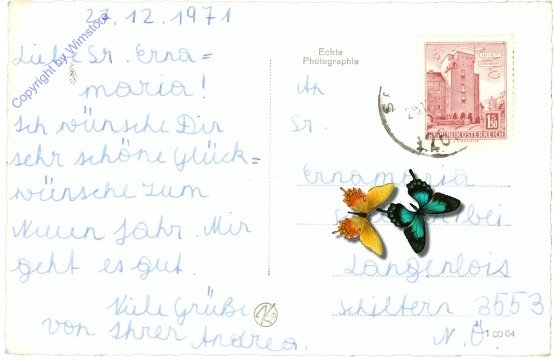 27.12.1971
Liebe Sr. Erna=
maria!
Ich wünsche Dir
sehr schöne Glück=
wünsche zum
Neuen Jahr. Mir
geht es gut.
Viele Grüße
von Ihrer Andrea.
Copyright by Wimstore
Echte
Photographie
An
Sr.
Ernamaria
bei
Langenlois
Schiltern 3553
N.Ö.
1 00 64
1.50
REPUBLIK ÖSTERREICH